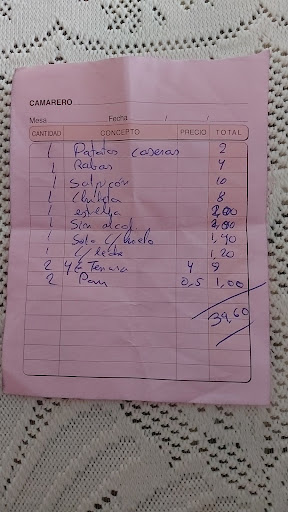 CAMARERO
Mesa Fecha / /
CANTIDAD CONCEPTO PRECIO TOTAL
1 Patatas caseras 2
1 Rabas 4
1 Salpicón 10
1 Chuleta 8
1 estrella 2,00
1 Sin alcol 2,00
1 Solo c/hielo 1,40
1 c/leche 1,20
2 Tercera 4 9
2 Pan 0,5 1,00
39,60